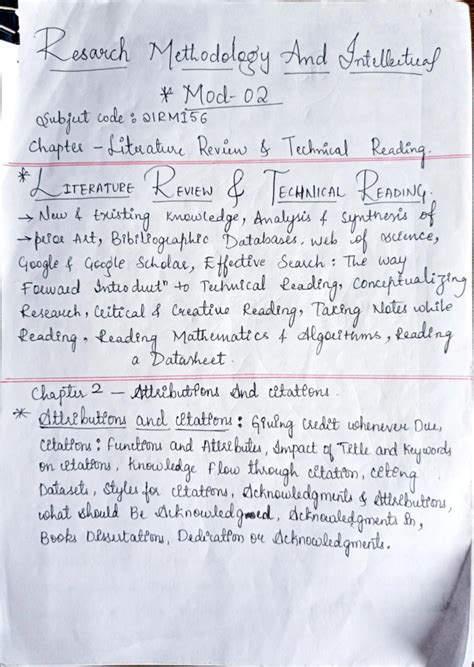 Resarch Methodology And Intellectual
* Mod-02
Subject code : 21RMI56
Chapter - Literature Review & Technical Reading.
* LITERATURE REVIEW & TECHNICAL READING.
→ New & Existing knowledge, Analysis & Synthesis of
→ prior Art, Bibiliographic Databases, web of science,
Google & Google Scholar, Effective Search : The way
Forward Introductn to Technical Reading, Conceptualizing
Research, Critical & Creative Reading, Taking Notes while
Reading, Reading Mathematics & Algorithms, Reading
a Datasheet.
Chapter 2 - Attributions And citations.
* Attributions and citations : Giving credit whenever Due,
Citations : Functions and Attributes, Impact of Title and Keywords
on citations, Knowledge Flow through citation, citing
Datasets, Styles for citations, Acknowledgments & Attributions,
what should Be Acknowledgmed, Acknowledgments In,
Books Dissertations, Dedication or Acknowledgments.